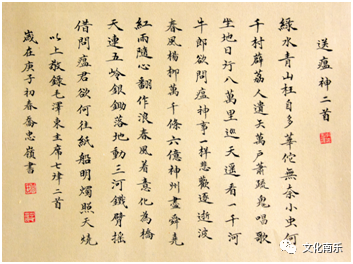 送瘟神二首
綠水青山枉自多華佗無奈小虫何
千村薜荔人遺矢萬户蕭疏鬼唱歌
坐地日行八萬里巡天遥看一千河
牛郎欲問瘟神事一樣悲歡逐逝波
春風楊柳萬千條六億神州盡舜堯
紅雨隨心翻作浪春風着意化為橋
天連五嶺銀鋤落地動三河鐵臂摇
借問瘟君欲何往紙船明燭照天燒
以上敬錄毛澤東主席七律二首
歲在庚子初春喬忠嶺書
文化南乐